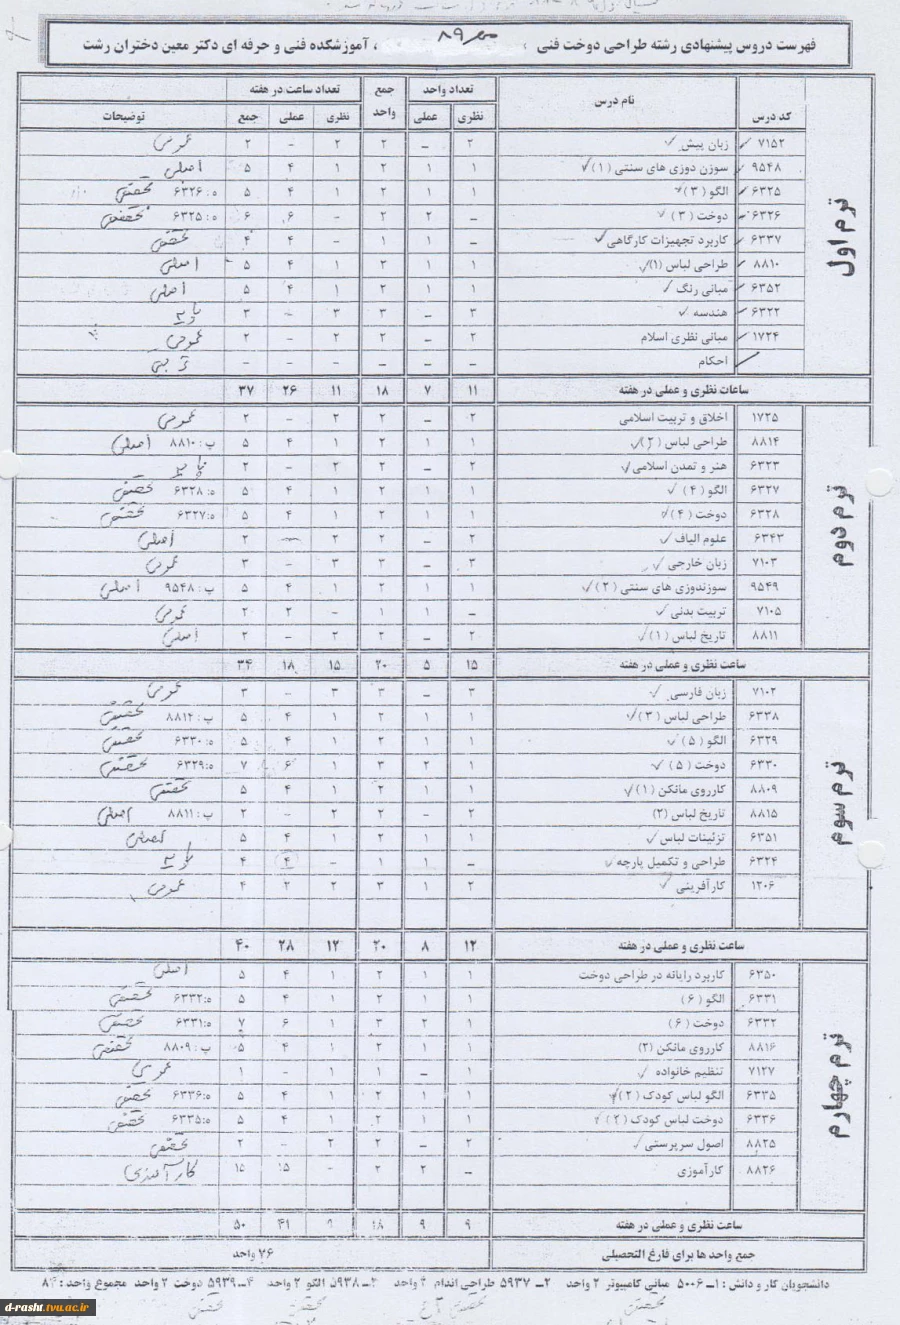 فهرست دروس پیشنهادی رشته طراحی دوخت فنی ، مهر ۸۹ ، آموزشکده فنی و حرفه ای دکتر معین دختران رشت
کد درس نام درس تعداد واحد جمع واحد تعداد ساعت در هفته توضیحات
نظری عملی نظری عملی جمع
ترم اول
۷۱۵۲ زبان پیش ۲ – ۲ ۲ – ۲ عمومی
۹۵۴۸ سوزن دوزی های سنتی (۱) ۱ ۱ ۲ ۱ ۴ ۵ اصلی
۶۳۲۵ الگو (۳) ۱ ۱ ۲ ۱ ۴ ۵ ه: ۶۳۲۶ تخصصی
۶۳۲۶ دوخت (۳) – ۲ ۲ – ۶ ۶ ه: ۶۳۲۵ تخصصی
۶۳۳۷ کاربرد تجهیزات کارگاهی – ۱ ۱ – ۴ ۴ تخصصی
۸۸۱۰ طراحی لباس (۱) ۱ ۱ ۲ ۱ ۴ ۵ اصلی
۶۳۵۲ مبانی رنگ ۱ ۱ ۲ ۱ ۴ ۵ اصلی
۶۳۲۲ هندسه ۳ – ۳ ۳ – ۳ پایه
۱۷۲۴ مبانی نظری اسلام ۲ – ۲ ۲ – ۲ عمومی
احکام – – – – – – تربیتی
ساعات نظری و عملی در هفته ۱۱ ۷ ۱۸ ۱۱ ۲۶ ۳۷
ترم دوم
۱۷۲۵ اخلاق و تربیت اسلامی ۲ – ۲ ۲ – ۲ عمومی
۸۸۱۴ طراحی لباس (۲) ۱ ۱ ۲ ۱ ۴ ۵ پ: ۸۸۱۰ اصلی
۶۳۲۳ هنر و تمدن اسلامی ۲ – ۲ ۲ – ۲ پایه
۶۳۲۷ الگو (۴) ۱ ۱ ۲ ۱ ۴ ۵ ه: ۶۳۲۸ تخصصی
۶۳۲۸ دوخت (۴) ۱ ۱ ۲ ۱ ۴ ۵ ه: ۶۳۲۷ تخصصی
۶۳۴۳ علوم الیاف ۲ – ۲ ۲ – ۲ اصلی
۷۱۰۳ زبان خارجی ۳ – ۳ ۳ – ۳ عمومی
۹۵۴۹ سوزندوزی های سنتی (۲) ۱ ۱ ۲ ۱ ۴ ۵ پ: ۹۵۴۸ اصلی
۷۱۰۵ تربیت بدنی – ۱ ۱ – ۲ ۲ عمومی
۸۸۱۱ تاریخ لباس (۱) ۲ – ۲ ۲ – ۲ اصلی
ساعت نظری و عملی در هفته ۱۵ ۵ ۲۰ ۱۵ ۱۸ ۳۴
ترم سوم
۷۱۰۲ زبان فارسی ۳ – ۳ ۳ – ۳ عمومی
۶۳۳۸ طراحی لباس (۳) ۱ ۱ ۲ ۱ ۴ ۵ پ: ۸۸۱۴ تخصصی
۶۳۲۹ الگو (۵) ۱ ۱ ۲ ۱ ۴ ۵ ه: ۶۳۳۰ تخصصی
۶۳۳۰ دوخت (۵) ۱ ۲ ۳ ۱ ۶ ۷ ه: ۶۳۲۹ تخصصی
۸۸۰۹ کارروی مانکن (۱) ۱ ۱ ۲ ۱ ۴ ۵ تخصصی
۸۸۱۵ تاریخ لباس (۲) ۲ – ۲ ۲ – ۲ پ: ۸۸۱۱ اصلی
۶۳۵۱ تزئینات لباس ۱ ۱ ۲ ۱ ۴ ۵ اصلی
۶۳۲۴ طراحی و تکمیل پارچه – ۱ ۱ – ۴ ۴ پایه
۱۲۰۶ کارآفرینی ۲ ۱ ۳ ۲ ۲ ۴ عمومی
ساعت نظری و عملی در هفته ۱۲ ۸ ۲۰ ۱۲ ۲۸ ۴۰
ترم چهارم
۶۳۵۰ کاربرد رایانه در طراحی دوخت ۱ ۱ ۲ ۱ ۴ ۵ اصلی
۶۳۳۱ الگو (۶) ۱ ۱ ۲ ۱ ۴ ۵ ه: ۶۳۳۲ تخصصی
۶۳۳۲ دوخت (۶) ۱ ۲ ۳ ۱ ۶ ۷ ه: ۶۳۳۱ تخصصی
۸۸۱۶ کارروی مانکن (۲) ۱ ۱ ۲ ۱ ۴ ۵ پ: ۸۸۰۹ تخصصی
۷۱۲۷ تنظیم خانواده ۱ – ۱ ۱ – ۱ عمومی
۶۳۳۵ الگو لباس کودک (۲) ۱ ۱ ۲ ۱ ۴ ۵ ه: ۶۳۳۶ تخصصی
۶۳۳۶ دوخت لباس کودک (۲) ۱ ۱ ۲ ۱ ۴ ۵ ه: ۶۳۳۵ تخصصی
۸۸۲۵ اصول سرپرستی ۲ – ۲ ۲ – ۲ تخصصی
۸۸۲۶ کارآموزی – ۲ ۲ – ۱۵ ۱۵ کارآموزی
ساعت نظری و عملی در هفته ۹ ۹ ۱۸ ۹ ۴۱ ۵۰
جمع واحد ها برای فارغ التحصیلی ۷۶ واحد
دانشجویان کار و دانش : ۱ــ ۵۰۰۶ مبانی کامپیوتر ۲ واحد ۲ــ ۵۹۳۷ طراحی اندام ۲ واحد ۳ــ ۵۹۳۸ الگو ۲ واحد ۴ــ ۵۹۳۹ دوخت ۲ واحد مجموع واحد : ۸۴
d-rasht.tvu.ac.ir